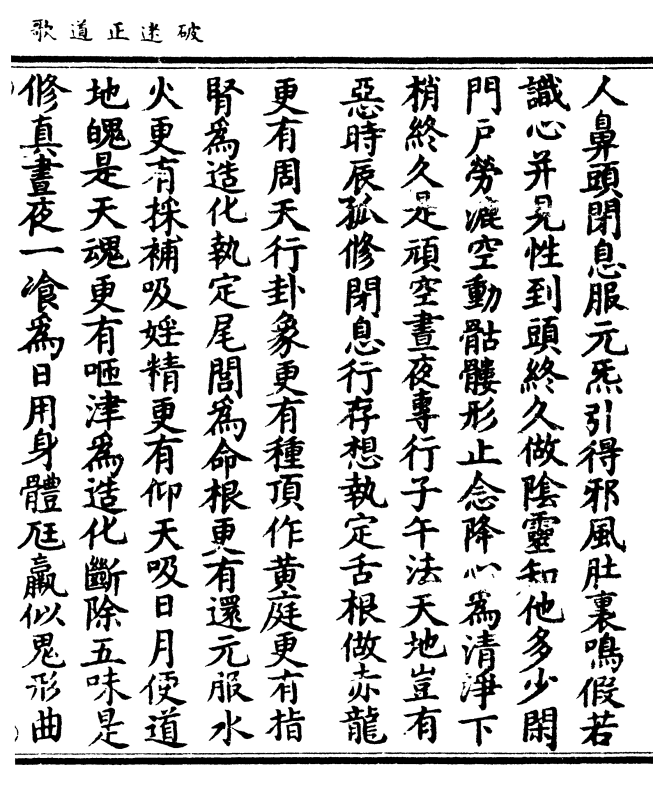 破迷正道歌
人鼻頭閉息服元炁引得邪風肚裏鳴假若
識心并見性到頭終久做陰靈知他多少閑
門戶勞漉空動骷髏形止念降心爲清淨下
梢終久是頑空晝夜專行子午法天地豈有
惡時辰孤修閉息行存想執定舌根做赤龍
更有周天行卦象更有種頂作黃庭更有指
腎爲造化執定尾閭爲命根更有還元服水
火更有採補吸婬精更有仰天吸日月便道
地魄是天魂更有咂津爲造化斷除五味是
修真晝夜一飡爲日用身體尫羸似鬼形曲